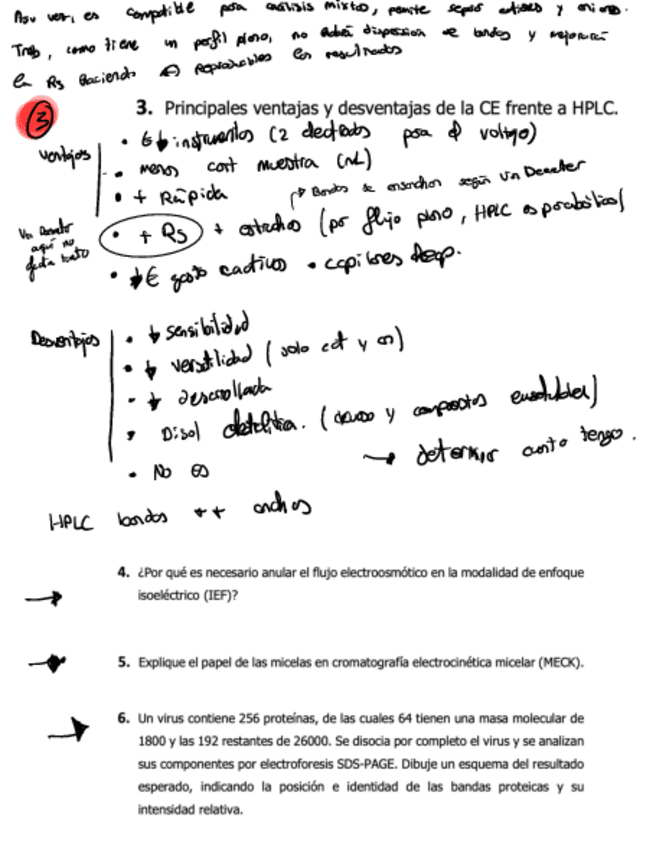 es compatible para análisis mixto, permite separar cationes y aniones.
como tiene un perfil plano, no habrá dispersión de bandas y mejorará
la Rs haciendo reproducibles los resultados
3
3. Principales ventajas y desventajas de la CE frente a HPLC.
Ventajas
• €↓ instrumentos (2 electrodos para voltaje)
• menos cant muestra (nL)
• + Rápida
→ Bandas se ensanchan según Van Deemter
• + Rs + estrechas (por flujo plano, HPLC es parabólico)
Van Deemter
aquí no
afecta tanto
• ↓€ gasto reactivos • capilares
Desventajas
• ↓ sensibilidad
• ↓ versatilidad (solo cat y an)
• ↓ desarrollada
• Disol electrolítica. (
y compuestos
)
→ determinar cuanto tengo.
• No
HPLC bandas ++ anchas
→
4. ¿Por qué es necesario anular el flujo electroosmótico en la modalidad de enfoque
isoeléctrico (IEF)?
→
5. Explique el papel de las micelas en cromatografía electrocinética micelar (MECK).
→
6. Un virus contiene 256 proteínas, de las cuales 64 tienen una masa molecular de
1800 y las 192 restantes de 26000. Se disocia por completo el virus y se analizan
sus componentes por electroforesis SDS-PAGE. Dibuje un esquema del resultado
esperado, indicando la posición e identidad de las bandas proteicas y su
intensidad relativa.